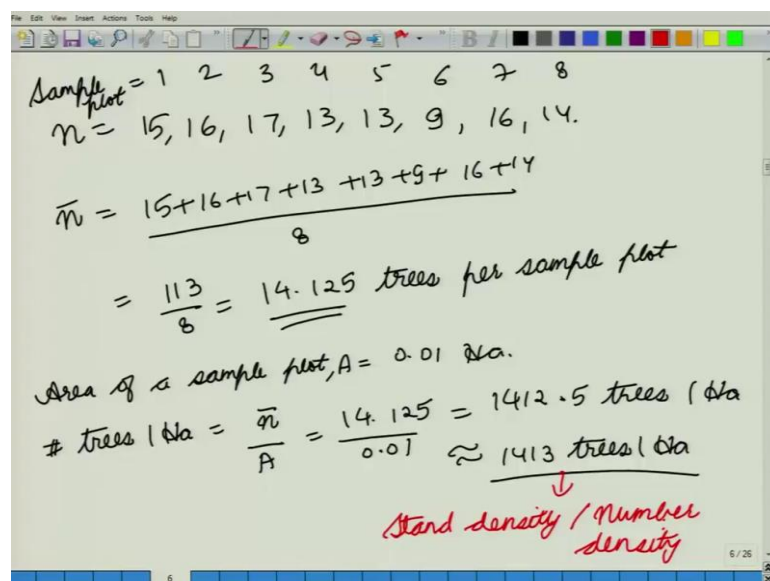 File Edit View Insert Actions Tools Help
Sample plot = 1 2 3 4 5 6 7 8
n = 15, 16, 17, 13, 13, 9, 16, 14.
n̄ = 15+16+17+13+13+9+16+14
8
= 113/8 = 14.125 trees per sample plot
Area of a sample plot, A = 0.01 Ha.
# trees / Ha = n̄/A = 14.125/0.01 = 1412.5 trees / Ha
≈ 1413 trees / Ha
↓
Stand density / Number
density
6 / 26
6